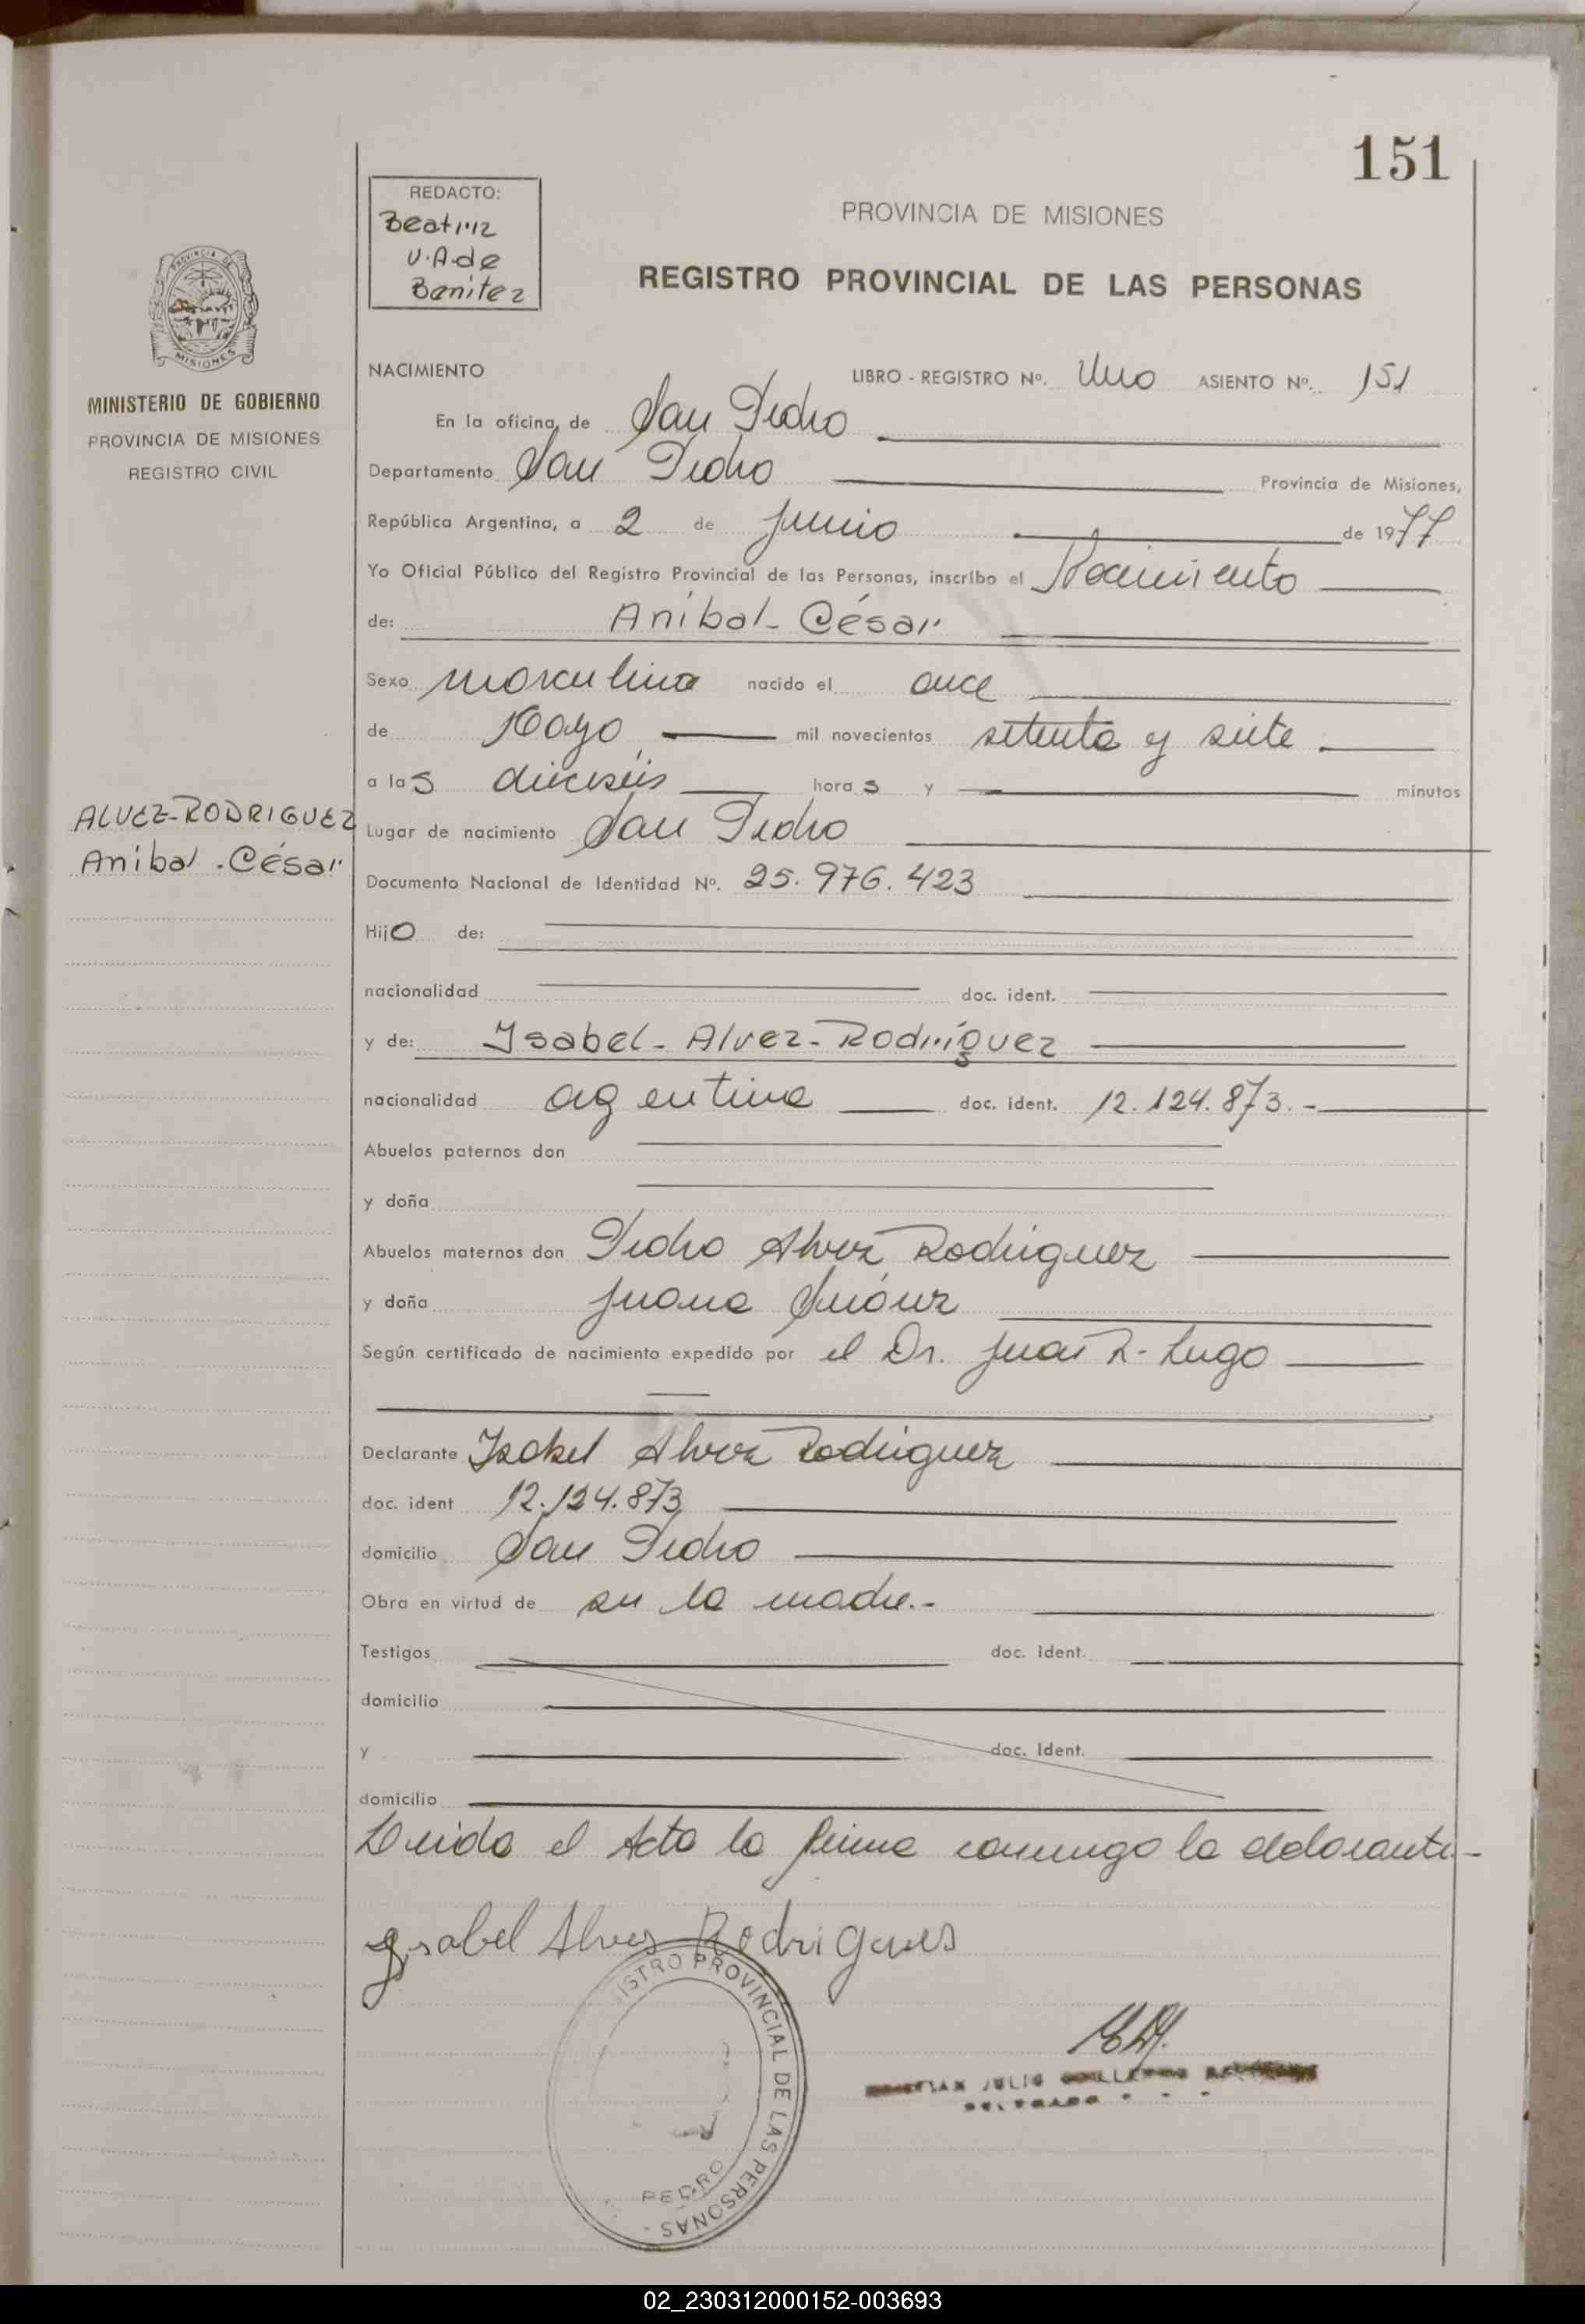 151
REDACTO:
Beatriz
V.A.de
Benitez
PROVINCIA DE MISIONES
REGISTRO PROVINCIAL DE LAS PERSONAS
MINISTERIO DE GOBIERNO
PROVINCIA DE MISIONES
REGISTRO CIVIL
NACIMIENTO LIBRO - REGISTRO Nº. Uno ASIENTO Nº. 151
En la oficina de San Pedro
Departamento San Pedro Provincia de Misiones,
República Argentina, a 2 de junio de 1977
Yo Oficial Público del Registro Provincial de las Personas, inscribo el Nacimiento
de: Aníbal - César
Sexo masculino nacido el once
de Mayo mil novecientos setenta y siete
a las dieciséis horas y minutos
ALVEZ-RODRIGUEZ
Aníbal - César
Lugar de nacimiento San Pedro
Documento Nacional de Identidad Nº. 25.976.423
Hijo de:
nacionalidad doc. ident.
y de: Ysabel - Alvez - Rodríguez
nacionalidad argentina doc. ident. 12.124.873.-
Abuelos paternos don
y doña
Abuelos maternos don Pedro Alvez Rodriguez
y doña Juana
Según certificado de nacimiento expedido por el Dr. Juan R. Lugo
Declarante Isabel Alvez Rodriguez
doc. ident 12.124.873
domicilio San Pedro
Obra en virtud de ser la madre.-
Testigos doc. Ident.
domicilio
y doc. Ident.
domicilio
Leida el Acta la firma conmigo la declarante.-
Ysabel Alves Rodrigues
REGISTRO PROVINCIAL DE LAS PERSONAS
PEDRO
JULIO GUILLERMO
02_230312000152-003693